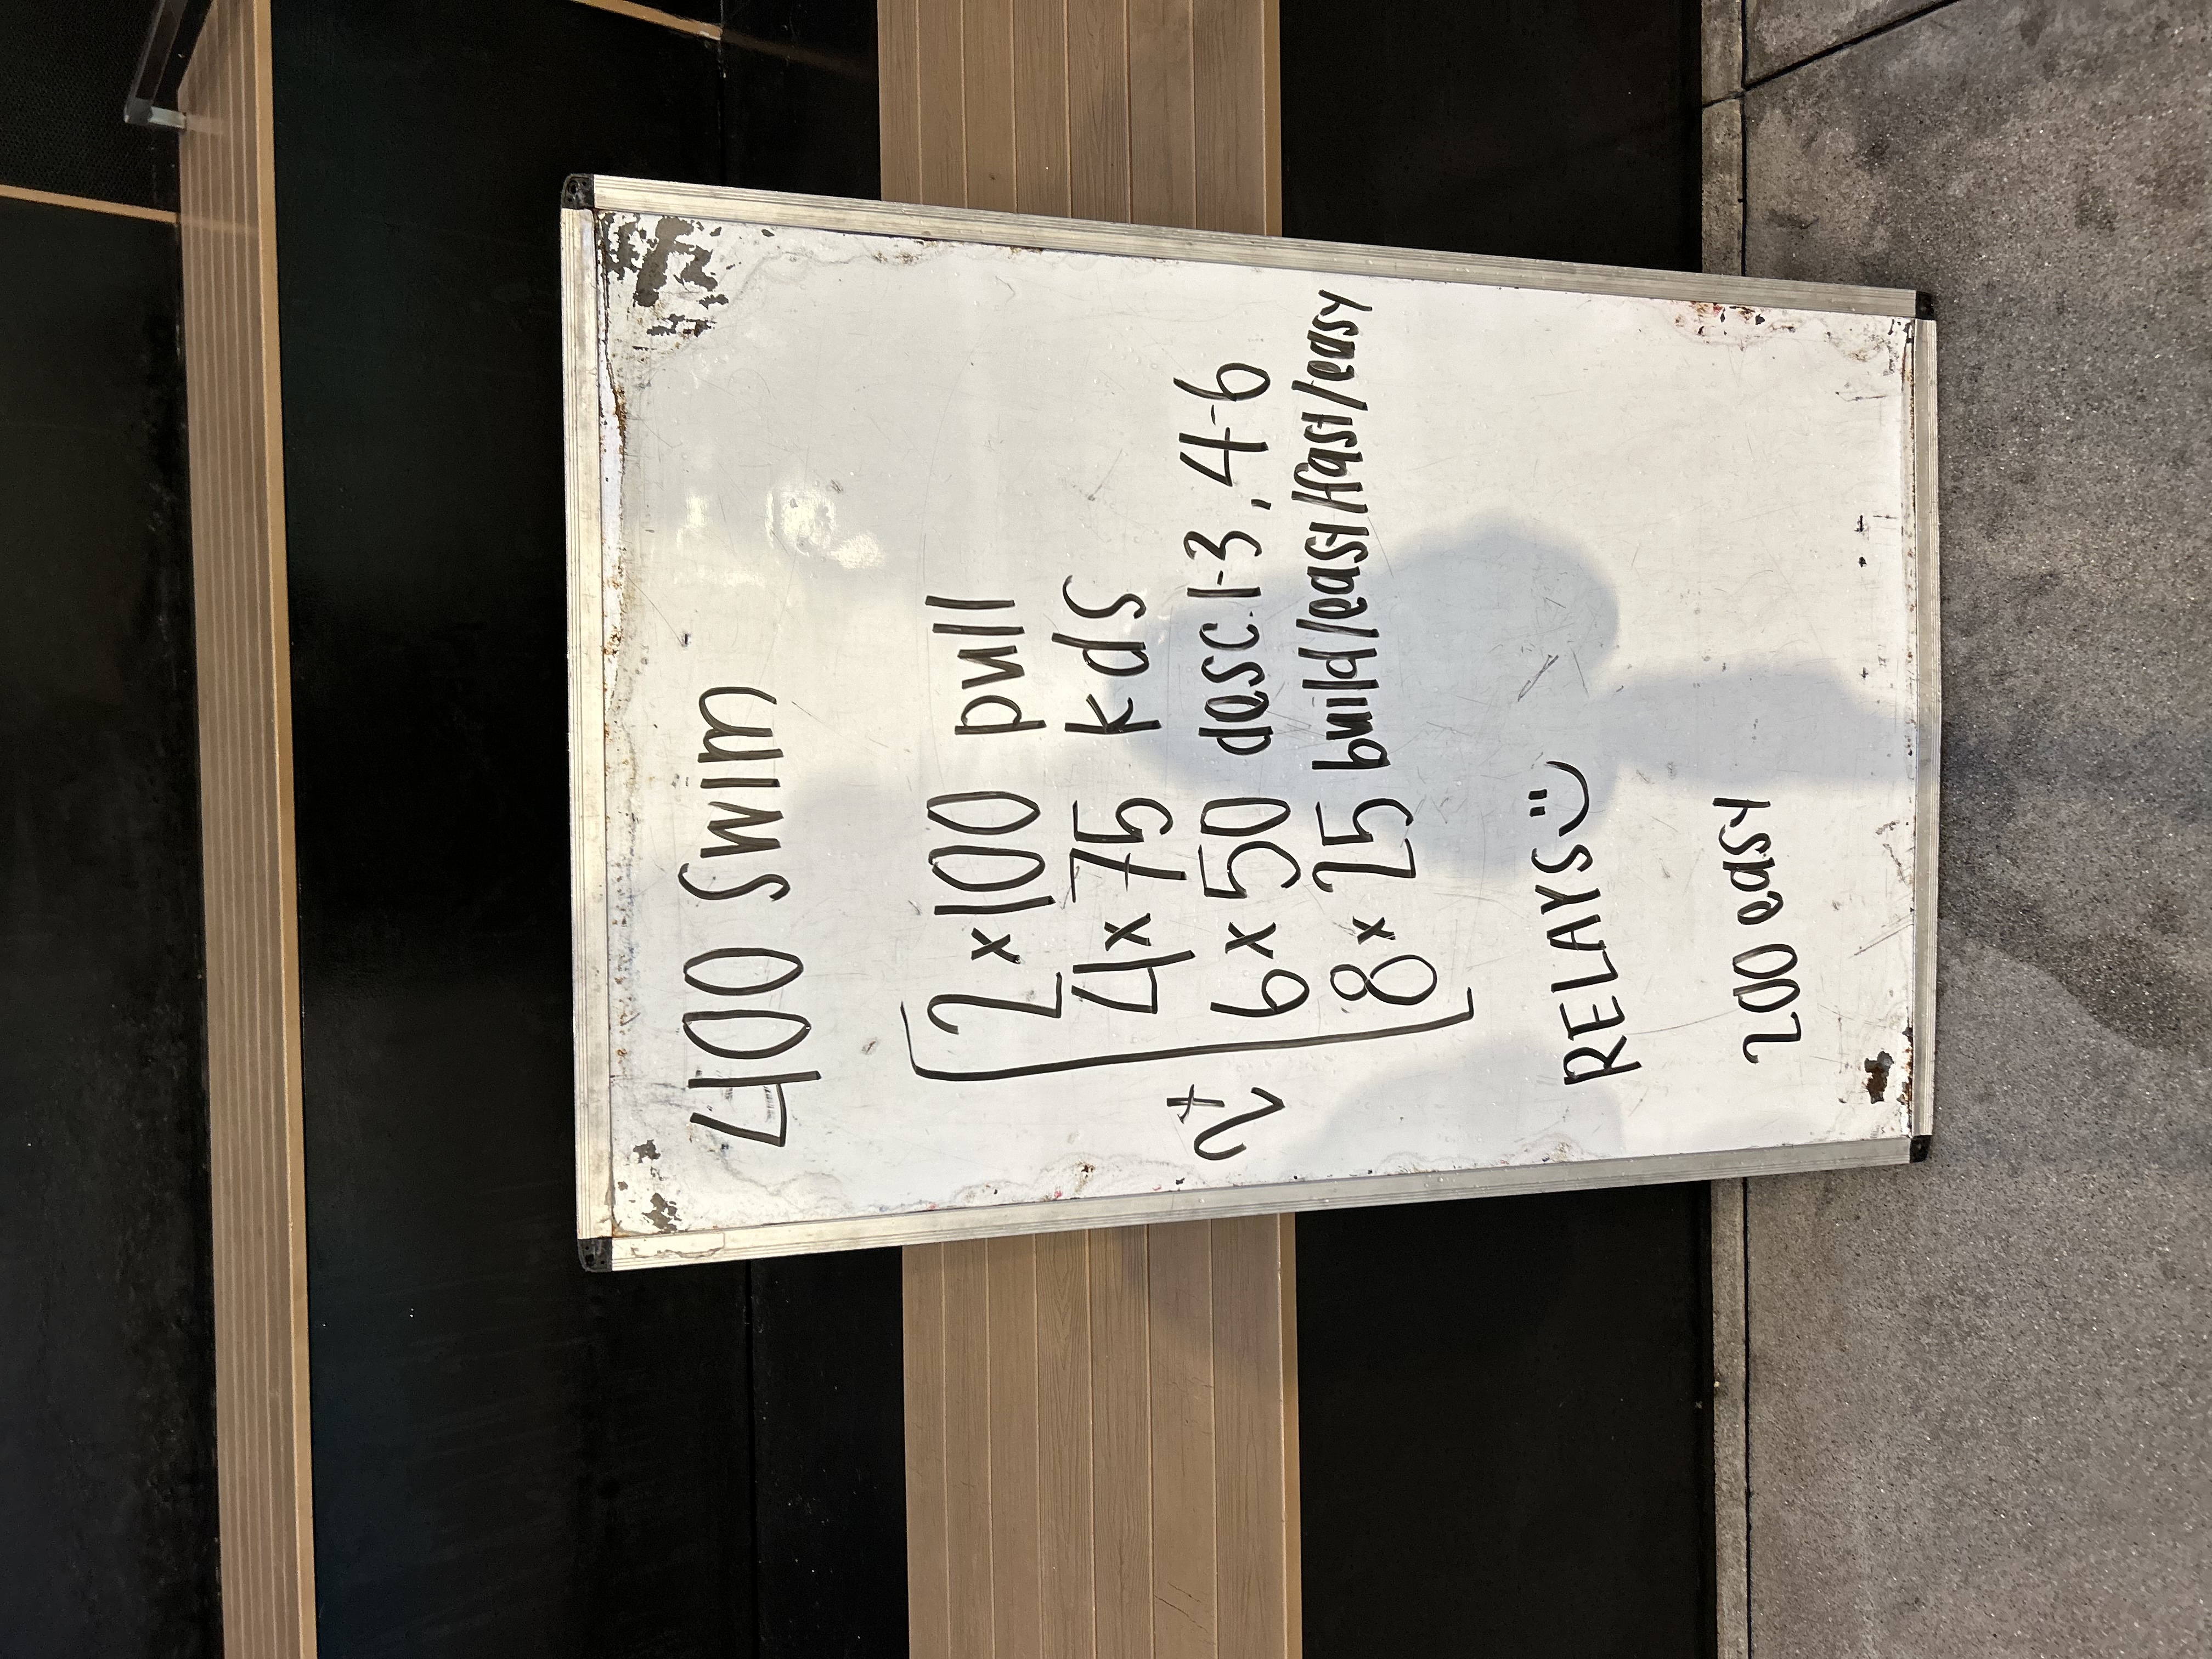 400 swim
2 x 100 pull
4 x 75 kds
2+ 6 x 50 desc. 1-3, 4-6
8 x 25 build/east/fast/easy
RELAYS :)
200 easy